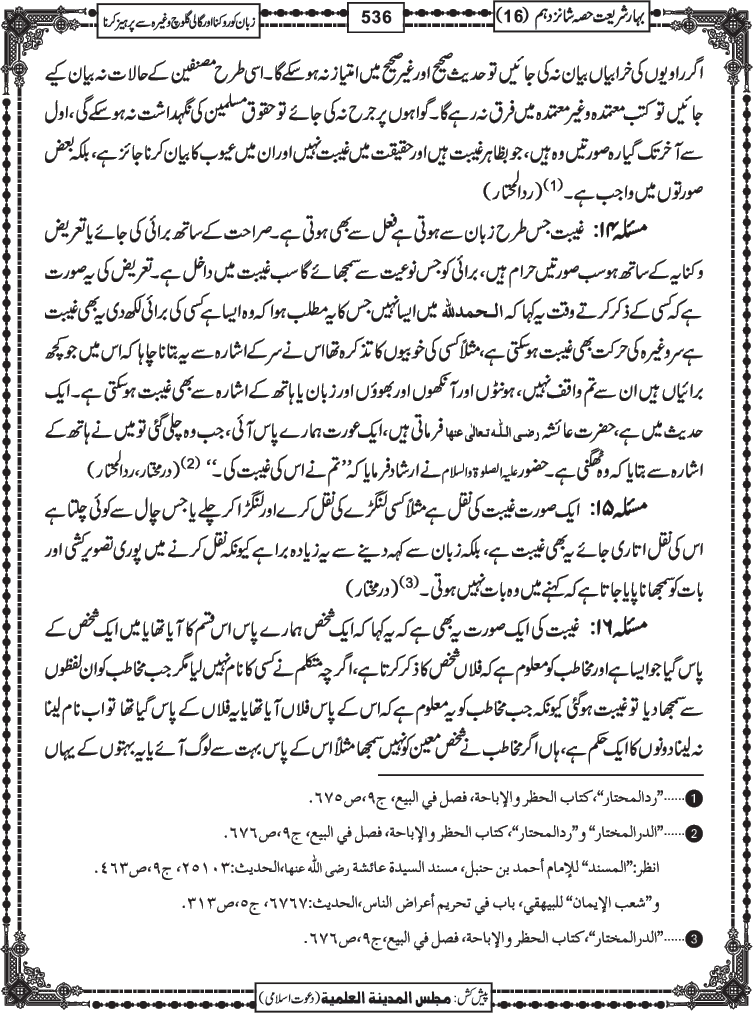 بہارِ شریعت حصہ شانزدہم (16)
536
زبان کو روکنا اور گالی گلوچ وغیرہ سے پرہیز کرنا
اگر راویوں کی خرابیاں بیان نہ کی جائیں تو حدیث صحیح اور غیر صحیح میں امتیاز نہ ہوسکے گا۔ اسی طرح مصنفین کے حالات نہ بیان کیے
جائیں تو کتب معتمدہ وغیر معتمدہ میں فرق نہ رہے گا۔ گواہوں پر جرح نہ کی جائے تو حقوق مسلمین کی نگہداشت نہ ہوسکے گی، اول
سے آخر تک گیارہ صورتیں وہ ہیں، جو بظاہر غیبت ہیں اور حقیقت میں غیبت نہیں اور ان میں عیوب کا بیان کرنا جائز ہے، بلکہ بعض
صورتوں میں واجب ہے۔(1) (ردالمحتار)
مسئلہ ۱۴: غیبت جس طرح زبان سے ہوتی ہے فعل سے بھی ہوتی ہے۔ صراحت کے ساتھ برائی کی جائے یا تعریض
وکنایہ کے ساتھ ہو سب صورتیں حرام ہیں، برائی کو جس نوعیت سے سمجھائے گا سب غیبت میں داخل ہے۔ تعریض کی یہ صورت
ہے کہ کسی کے ذکر کرتے وقت یہ کہا کہ الحمدللہ میں ایسا نہیں جس کا یہ مطلب ہوا کہ وہ ایسا ہے کسی کی برائی لکھ دی یہ بھی غیبت
ہے سر وغیرہ کی حرکت بھی غیبت ہوسکتی ہے، مثلاً کسی کی خوبیوں کا تذکرہ تھا اس نے سر کے اشارہ سے یہ بتانا چاہا کہ اس میں جو کچھ
برائیاں ہیں ان سے تم واقف نہیں، ہونٹوں اور آنکھوں اور بھوؤں اور زبان یا ہاتھ کے اشارہ سے بھی غیبت ہوسکتی ہے۔ ایک
حدیث میں ہے، حضرت عائشہ رضی اللہ تعالیٰ عنہا فرماتی ہیں، ایک عورت ہمارے پاس آئی، جب وہ چلی گئی تو میں نے ہاتھ کے
اشارہ سے بتایا کہ وہ ٹھگنی ہے۔ حضور علیہ الصلوۃ والسلام نے ارشاد فرمایا کہ ’’تم نے اس کی غیبت کی۔‘‘ (2) (درمختار، ردالمحتار)
مسئلہ ۱۵: ایک صورت غیبت کی نقل ہے مثلاً کسی لنگڑے کی نقل کرے اور لنگڑا کر چلے یا جس چال سے کوئی چلتا ہے
اس کی نقل اتاری جائے یہ بھی غیبت ہے، بلکہ زبان سے کہہ دینے سے یہ زیادہ برا ہے کیونکہ نقل کرنے میں پوری تصویر کشی اور
بات کو سمجھانا پایا جاتا ہے کہ کہنے میں وہ بات نہیں ہوتی۔(3) (درمختار)
مسئلہ ۱۶: غیبت کی ایک صورت یہ بھی ہے کہ یہ کہا کہ ایک شخص ہمارے پاس اس قسم کا آیا تھا یا میں ایک شخص کے
پاس گیا جو ایسا ہے اور مخاطب کو معلوم ہے کہ فلاں شخص کا ذکر کرتا ہے، اگرچہ متکلم نے کسی کا نام نہیں لیا مگر جب مخاطب کو ان لفظوں
سے سمجھا دیا تو غیبت ہوگئی کیونکہ جب مخاطب کو یہ معلوم ہے کہ اس کے پاس فلاں آیا تھا یا یہ فلاں کے پاس گیا تھا تو اب نام لینا
نہ لینا دونوں کا ایک حکم ہے، ہاں اگر مخاطب نے شخص معین کو نہیں سمجھا مثلاً اس کے پاس بہت سے لوگ آئے یا یہ بہتوں کے یہاں
1 ......”ردالمحتار“، کتاب الحظر والإباحة، فصل في البيع، ج٩، ص٦٧٥.
2 ......”الدرالمختار“ و”ردالمحتار“، کتاب الحظر والإباحة، فصل في البيع، ج٩، ص٦٧٦.
انظر: ”المسند“ للإمام أحمد بن حنبل، مسند السيدة عائشة رضی اللہ عنها، الحديث: ٢٥١٠٣، ج٩، ص٤٦٣.
و”شعب الإيمان“ للبيهقي، باب في تحريم أعراض الناس، الحديث: ٦٧٦٧، ج٥، ص٣١٣.
3 ......”الدرالمختار“، کتاب الحظر والإباحة، فصل في البيع، ج٩، ص٦٧٦.
پیش کش: مجلس المدینة العلمیة (دعوت اسلامی)